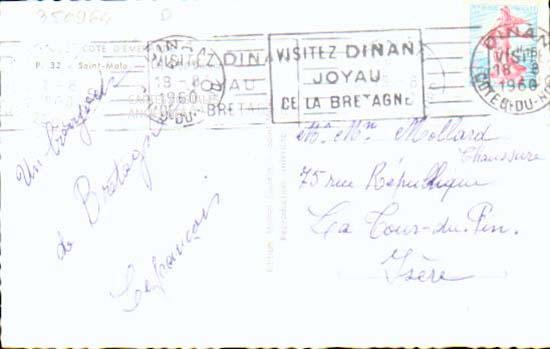 350964 D
CÔTE D'ÉME
P. 32 - Saint-Malo
VISITEZ DINAN
JOYAU
DE LA BRETAGNE
18 - 8
1960
VISITEZ DINAN
JOYAU
DE LA BRETAGNE
DINAN
18 - 8
1960
CÔTES-DU-N
Un bonjour
de Bretagne
Lefrançois
Mr Mme Mollard
Chaussure
75 rue République
La Tour-du-Pin.
Isère